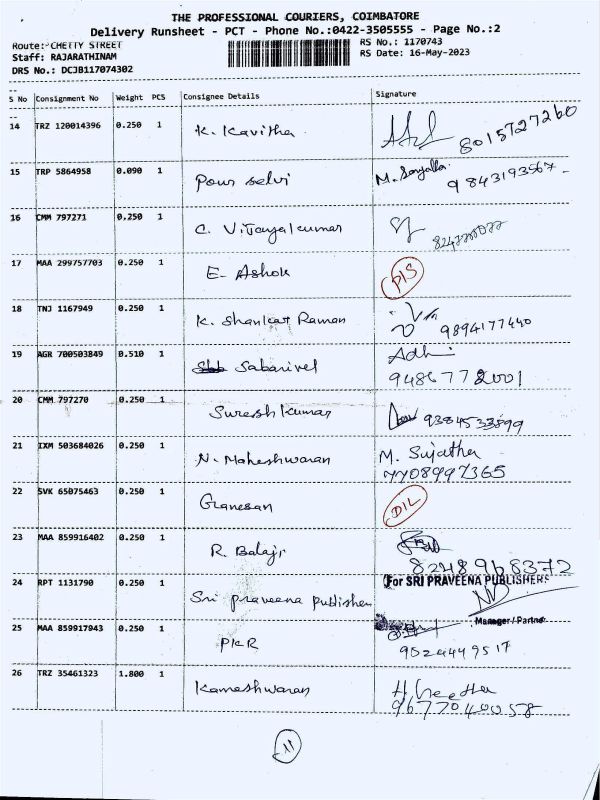 THE PROFESSIONAL COURIERS, COIMBATORE
Delivery Runsheet - PCT - Phone No.:0422-3505555 - Page No.:2
Route: CHETTY STREET
RS No.: 1170743
Staff: RAJARATHINAM
RS Date: 16-May-2023
DRS No.: DCJB117074302
S No Consignment No Weight PCS Consignee Details Signature
14 TRZ 120014396 0.250 1 K. Kavitha 8015727260
15 TRP 5864958 0.090 1 Pour selvi M. 9843193567
16 CMM 797271 0.250 1 C. Vijayalkumar
17 MAA 299757703 0.250 1 E. Ashok PIS
18 TNJ 1167949 0.250 1 K. Shankar Raman 9894177440
19 AGR 700503849 0.510 1 Sabarivel Adhi
9486772001
20 CMM 797270 0.250 1 Suresh kumar 9384533899
21 IXM 503684026 0.250 1 N. Maheshwaran M. Sujatha
7708997365
22 SVK 65075463 0.250 1 Ganesan DIL
23 MAA 859916402 0.250 1 R. Balaji
8248968372
24 RPT 1131790 0.250 1 Sri praveena publisher For SRI PRAVEENA PUBLISHERS
Manager / Partner
25 MAA 859917943 0.250 1 PKR
9024449517
26 TRZ 35461323 1.800 1 Kameshwaran H. Geetha
9677040058
11